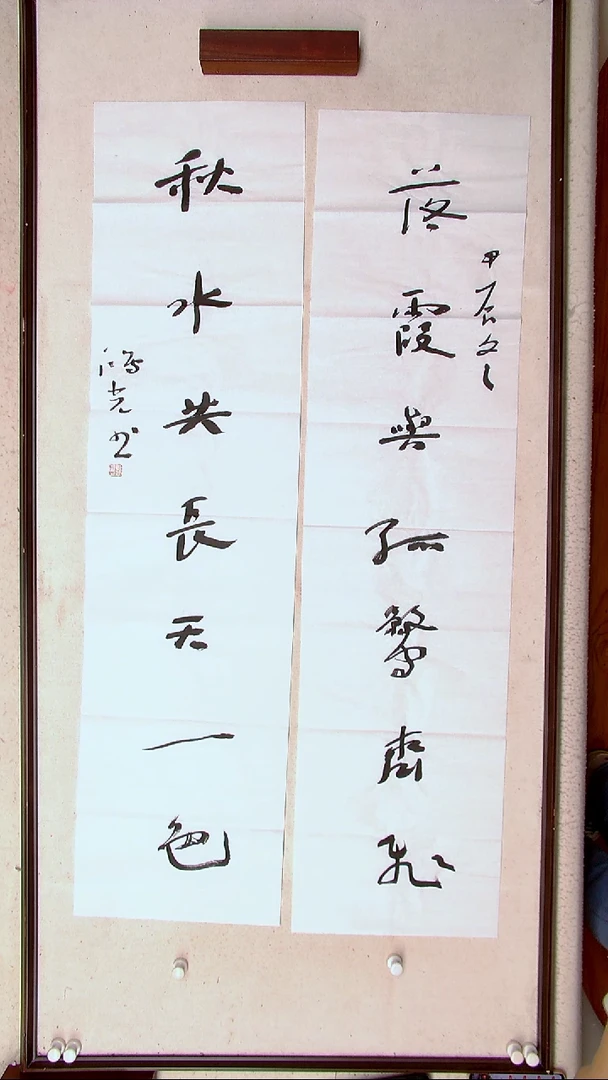 落霞與孤鶩齊飛
甲辰冬
秋水共長天一色
鴻堯书